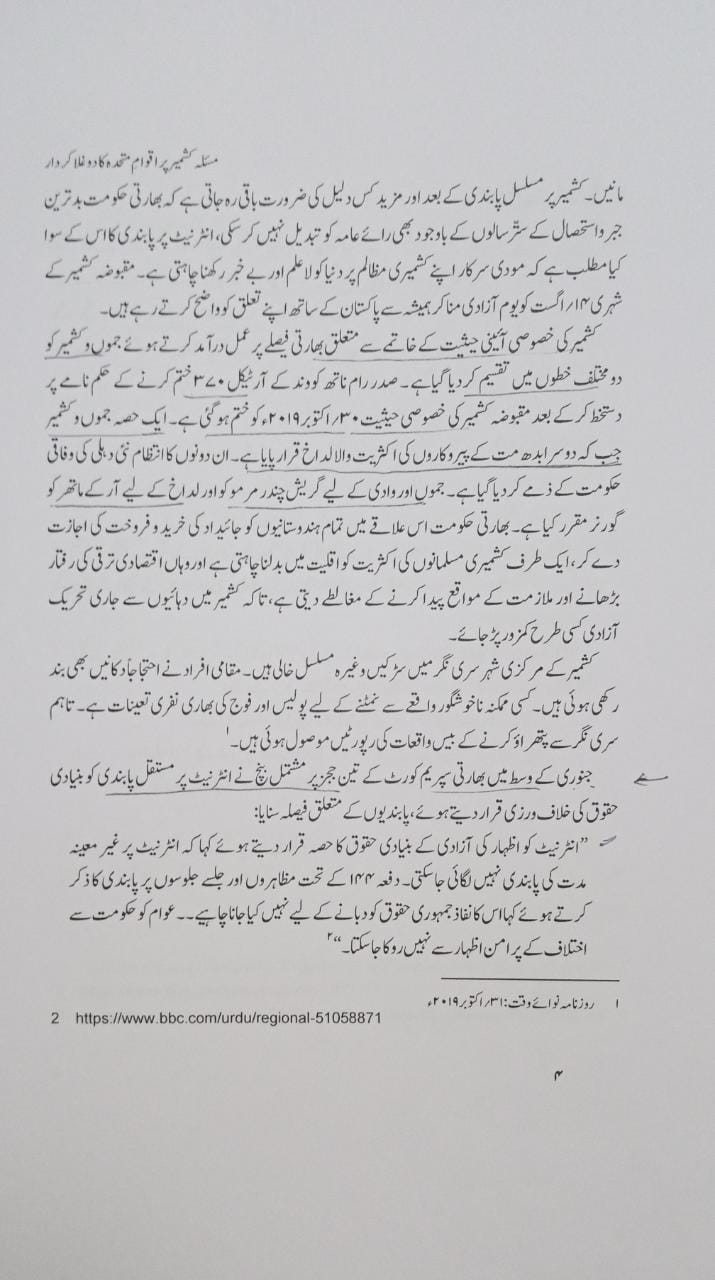 مسئلہ کشمیر پر اقوام متحدہ کا دوغلا کردار
مانیں۔ کشمیر پر مسلسل پابندی کے بعد اور مزید کس دلیل کی ضرورت باقی رہ جاتی ہے کہ بھارتی حکومت بدترین
جبر و استحصال کے ستّر سالوں کے باوجود بھی رائے عامہ کو تبدیل نہیں کر سکی، انٹرنیٹ پر پابندی کا اس کے سوا
کیا مطلب ہے کہ مودی سرکار اپنے کشمیری مظالم پر دنیا کو لاعلم اور بے خبر رکھنا چاہتی ہے۔ مقبوضہ کشمیر کے
شہری ۱۴/اگست کو یوم آزادی منا کر ہمیشہ سے پاکستان کے ساتھ اپنے تعلق کو واضح کرتے رہے ہیں۔
کشمیر کی خصوصی آئینی حیثیت کے خاتمے سے متعلق بھارتی فیصلے پر عمل درآمد کرتے ہوئے جموں و کشمیر کو
دو مختلف خطوں میں تقسیم کر دیا گیا ہے۔ صدر رام ناتھ کووند کے آرٹیکل ۳۷۰ ختم کرنے کے حکم نامے پر
دستخط کرکے بعد مقبوضہ کشمیر کی خصوصی حیثیت ۳۰/اکتوبر ۲۰۱۹ء کو ختم ہو گئی ہے۔ ایک حصہ جموں و کشمیر
جب کہ دوسرا بدھ مت کے پیروکاروں کی اکثریت والا لداخ قرار پایا ہے۔ ان دونوں کا انتظام نئی دہلی کی وفاقی
حکومت کے ذمے کر دیا گیا ہے۔ جموں اور وادی کے لیے گریش چندر مرمو کو اور لداخ کے لیے آر کے ماتھر کو
گورنر مقرر کیا ہے۔ بھارتی حکومت اس علاقے میں تمام ہندوستانیوں کو جائیداد کی خرید و فروخت کی اجازت
دے کر، ایک طرف کشمیری مسلمانوں کی اکثریت کو اقلیت میں بدلنا چاہتی ہے اور وہاں اقتصادی ترقی کی رفتار
بڑھانے اور ملازمت کے مواقع پیدا کرنے کے مغالطے دیتی ہے، تاکہ کشمیر میں دہائیوں سے جاری تحریک
آزادی کسی طرح کمزور پڑ جائے۔
کشمیر کے مرکزی شہر سری نگر میں سڑکیں وغیرہ مسلسل خالی ہیں۔ مقامی افراد نے احتجاجاً دکانیں بھی بند
رکھی ہوئی ہیں۔ کسی ممکنہ ناخوشگور واقعے سے نمٹنے کے لیے پولیس اور فوج کی بھاری نفری تعینات ہے۔ تاہم
سری نگر سے پتھراؤ کرنے کے بیس واقعات کی رپورٹیں موصول ہوئی ہیں۔۱
جنوری کے وسط میں بھارتی سپریم کورٹ کے تین ججز پر مشتمل بنچ نے انٹرنیٹ پر مستقل پابندی کو بنیادی
حقوق کی خلاف ورزی قرار دیتے ہوئے، پابندیوں کے متعلق فیصلہ سنایا:
”انٹرنیٹ کو اظہار کی آزادی کے بنیادی حقوق کا حصہ قرار دیتے ہوئے کہا کہ انٹرنیٹ پر غیر معینہ
مدت کی پابندی نہیں لگائی جا سکتی۔ دفعہ ۱۴۴ کے تحت مظاہروں اور جلسے جلوسوں پر پابندی کا ذکر
کرتے ہوئے کہا اس کا نفاذ جمہوری حقوق کو دبانے کے لیے نہیں کیا جانا چاہیے۔۔ عوام کو حکومت سے
اختلاف کے پر امن اظہار سے نہیں روکا جا سکتا۔“۲
۱ روزنامہ نوائے وقت: ۳۱/اکتوبر ۲۰۱۹ء
2 https://www.bbc.com/urdu/regional-51058871
۴